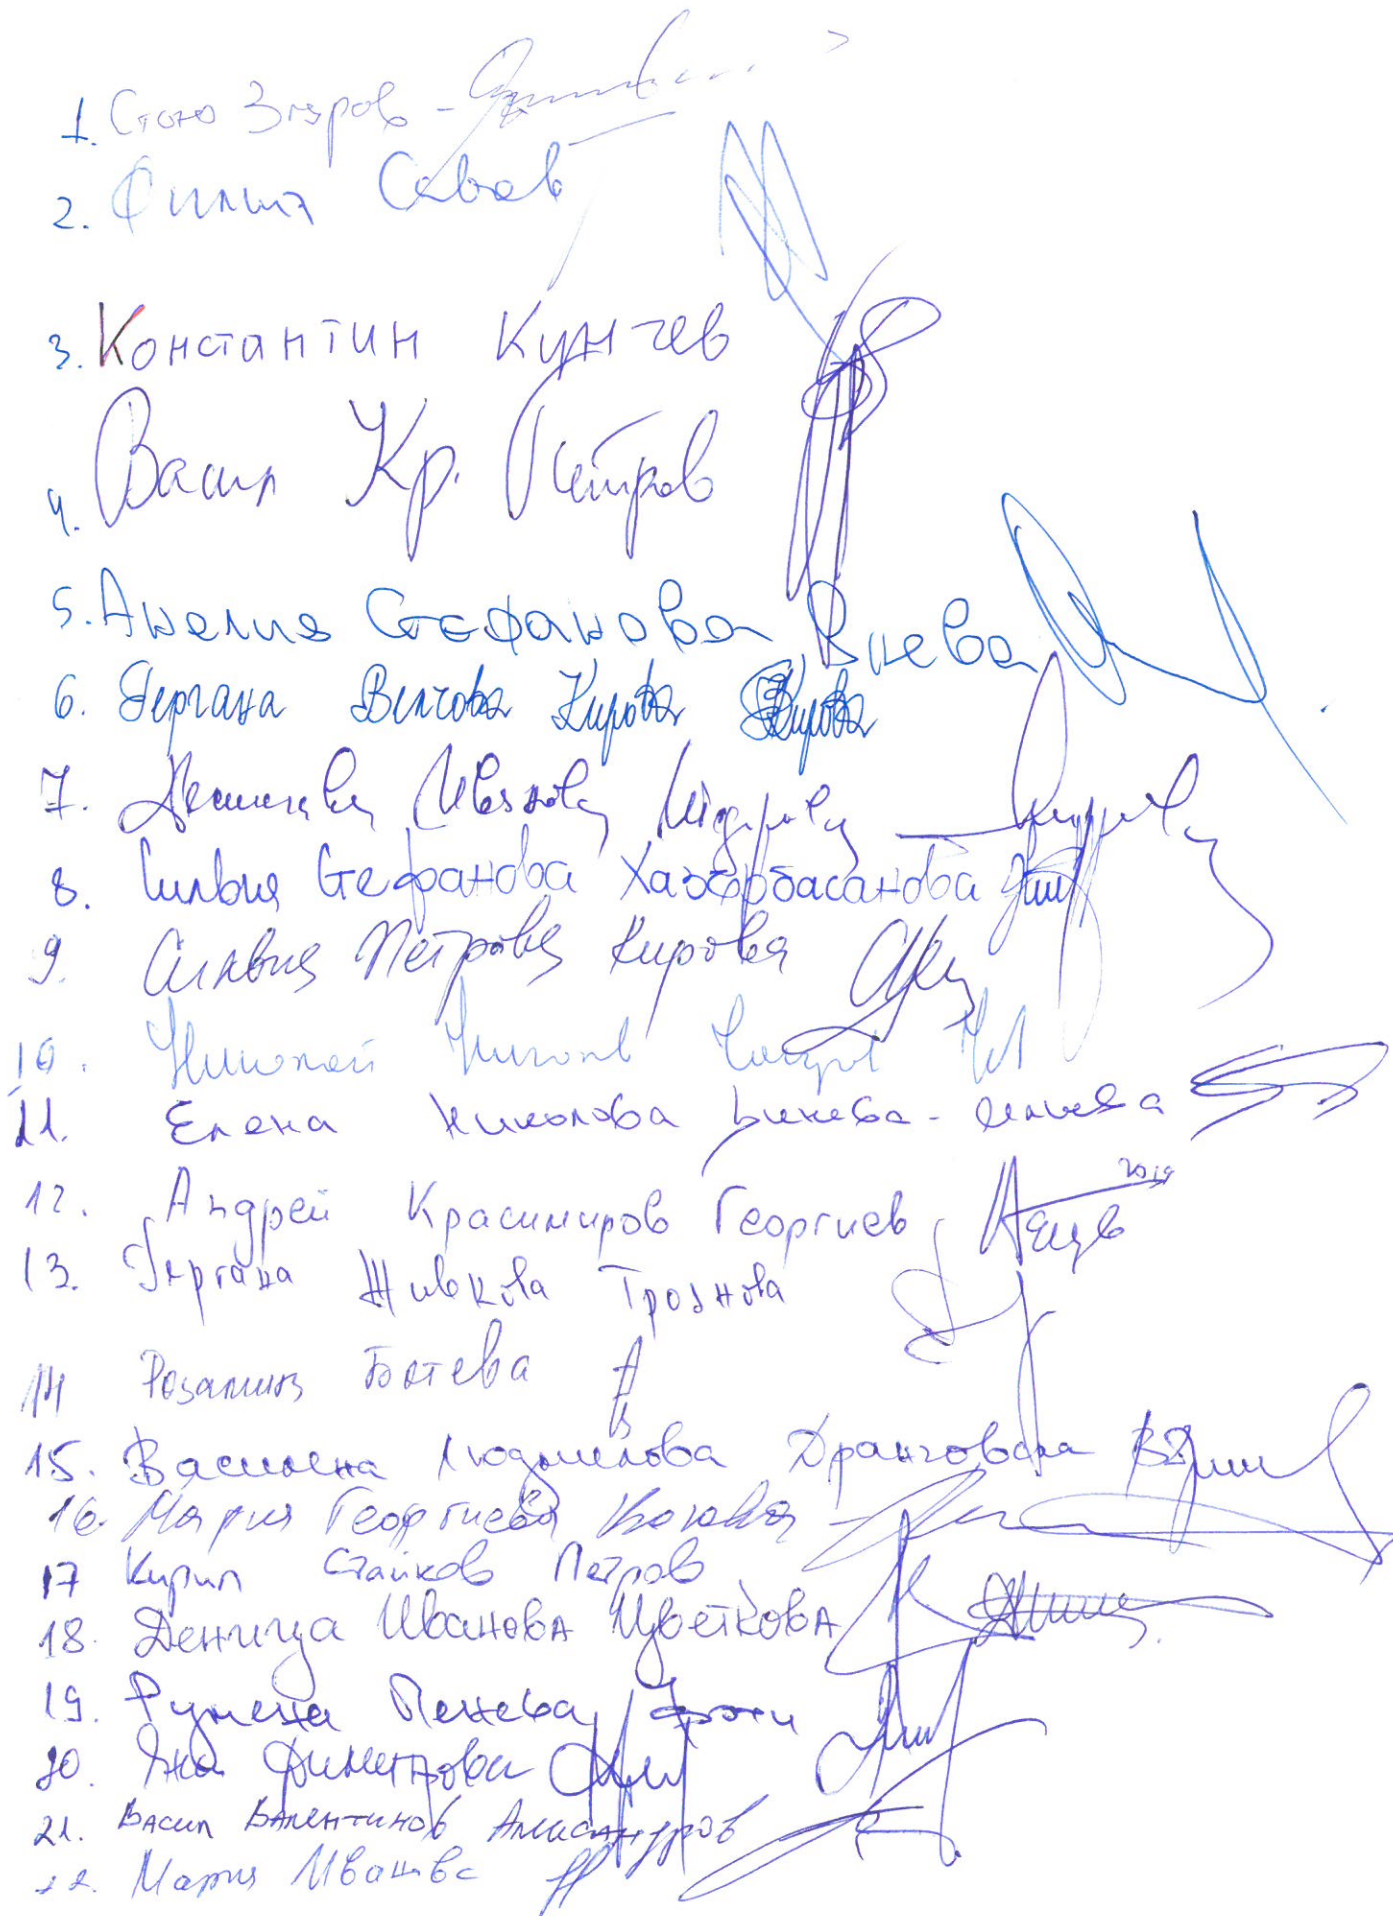 1. Стою Згуров -
2. Филип Савов
3. Константин Кунчев
4. Васил Кр. Петров
5. Анелия Стефанова Внева
6. Гергана Велчова Кирова Кирова
7. Иванова
8. Силвия Стефанова Хаджобасанова
9. Силвия Петрова Кирова
10. Николай
11. Елена Николова Винева - Илиева
12. Андрей Красимиров Георгиев 2019
13. Гергана Живкова Троянова
14 Розалина Ботева
15. Василена Людмилова Дранговска
16. Мария Георгиева
17 Кирил Стайков Петров
18. Деница Иванова Цветкова
19. Румена Пенева
20. Яна Димитрова
21. Васил Валентинов Александров
22. Мария Иванова